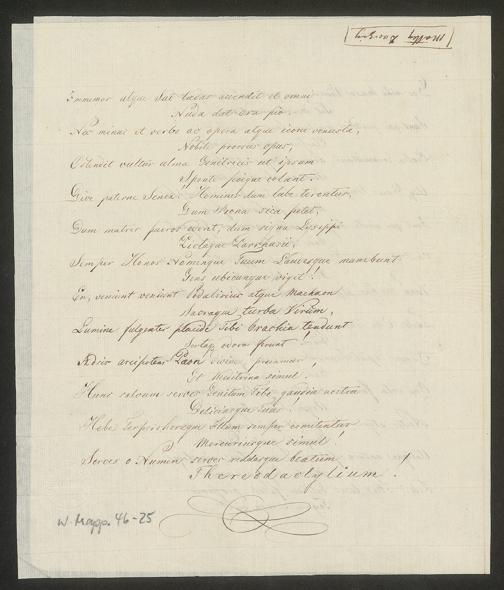 Emminor atque Sui taedas accendit et omni
Nuda dat ora pio
Nec minus et verbo ac opera atque icone venusta,
Nobile prorsus opus,
Ostendit vultus alma Genitricis ut ipsum
Sponte colant.
Give paterne Senex! Homines dum labe terentur,
Dum sica petet,
Dum mater pueros dum signa Lysippi
Semper Honos Nomenque Tuum Laudesque manebunt
Gens ubicunque viget!
En, veniunt veniunt Podalirius atque Machaon
Sacraque turba Virum,
Lumine fulgentes placide Tibi Brachia tendunt
odora ferunt!
arcipotens Paon precamur,
Et simul!
Hunc salvum serves Genitum Tibi gaudia nostra
Deliciasque Suas!
Hebe Terpsichoreque Illum semper comitentur
Mercuriusque simul!
Serves o Numen serves reddasque beatum
Thereodactylium!
W. Mapp. 46-25